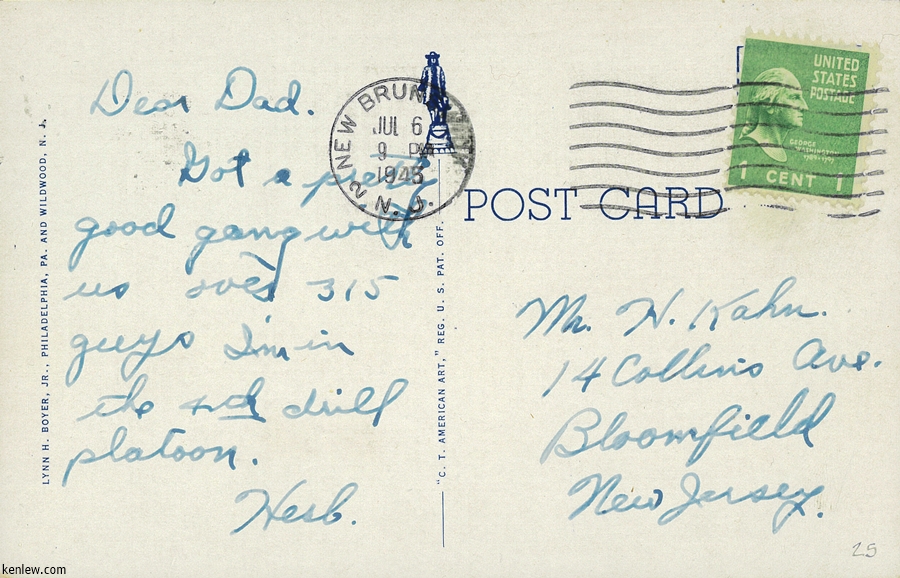 Dear Dad.
Got a pretty
good gang with
us over 315
guys I'm in
the drill
platoon.
Herb.
LYNN H. BOYER, JR., PHILADELPHIA, PA. AND WILDWOOD, N. J.
"C. T. AMERICAN ART," REG. U. S. PAT. OFF.
NEW BRUN
JUL 6
9 PM
N. J.
2
POST CARD
UNITED
STATES
POSTAGE
GEORGE
WASHINGTON
1 CENT 1
Mr. H. Kahn.
14 Collins Ave.
Bloomfield
New Jersey.
25
kenlew.com